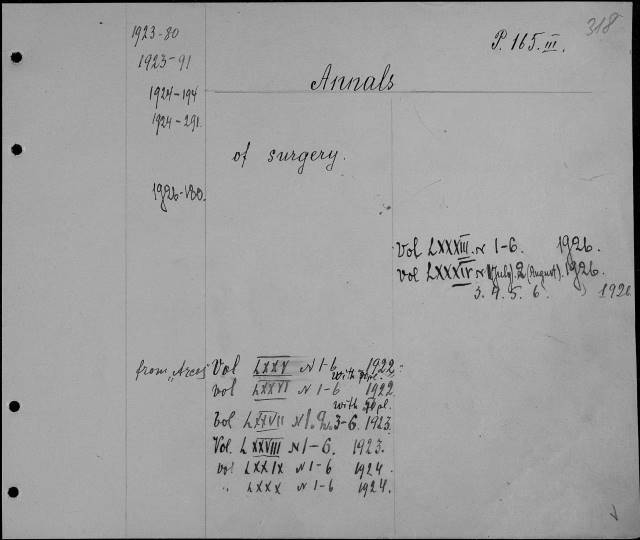 318
1923-80
P. 165. III.
1923-91
Annals
1924-194
1924-291.
of surgery.
1926-180.
Vol LXXXIII. N 1-6. 1926.
Vol LXXXIV N 1 (July). 2 (August). 1926.
3. 4. 5. 6. 1926
from "Arcos" Vol LXXV N 1-6 1922.
with pl.
vol LXXVI N 1-6 1922
with pl.
Vol LXXVII N 1. 2. 3-6. 1923.
Vol. LXXVIII N 1-6. 1923.
vol LXXIX N 1-6 1924.
" LXXX N 1-6 1924.